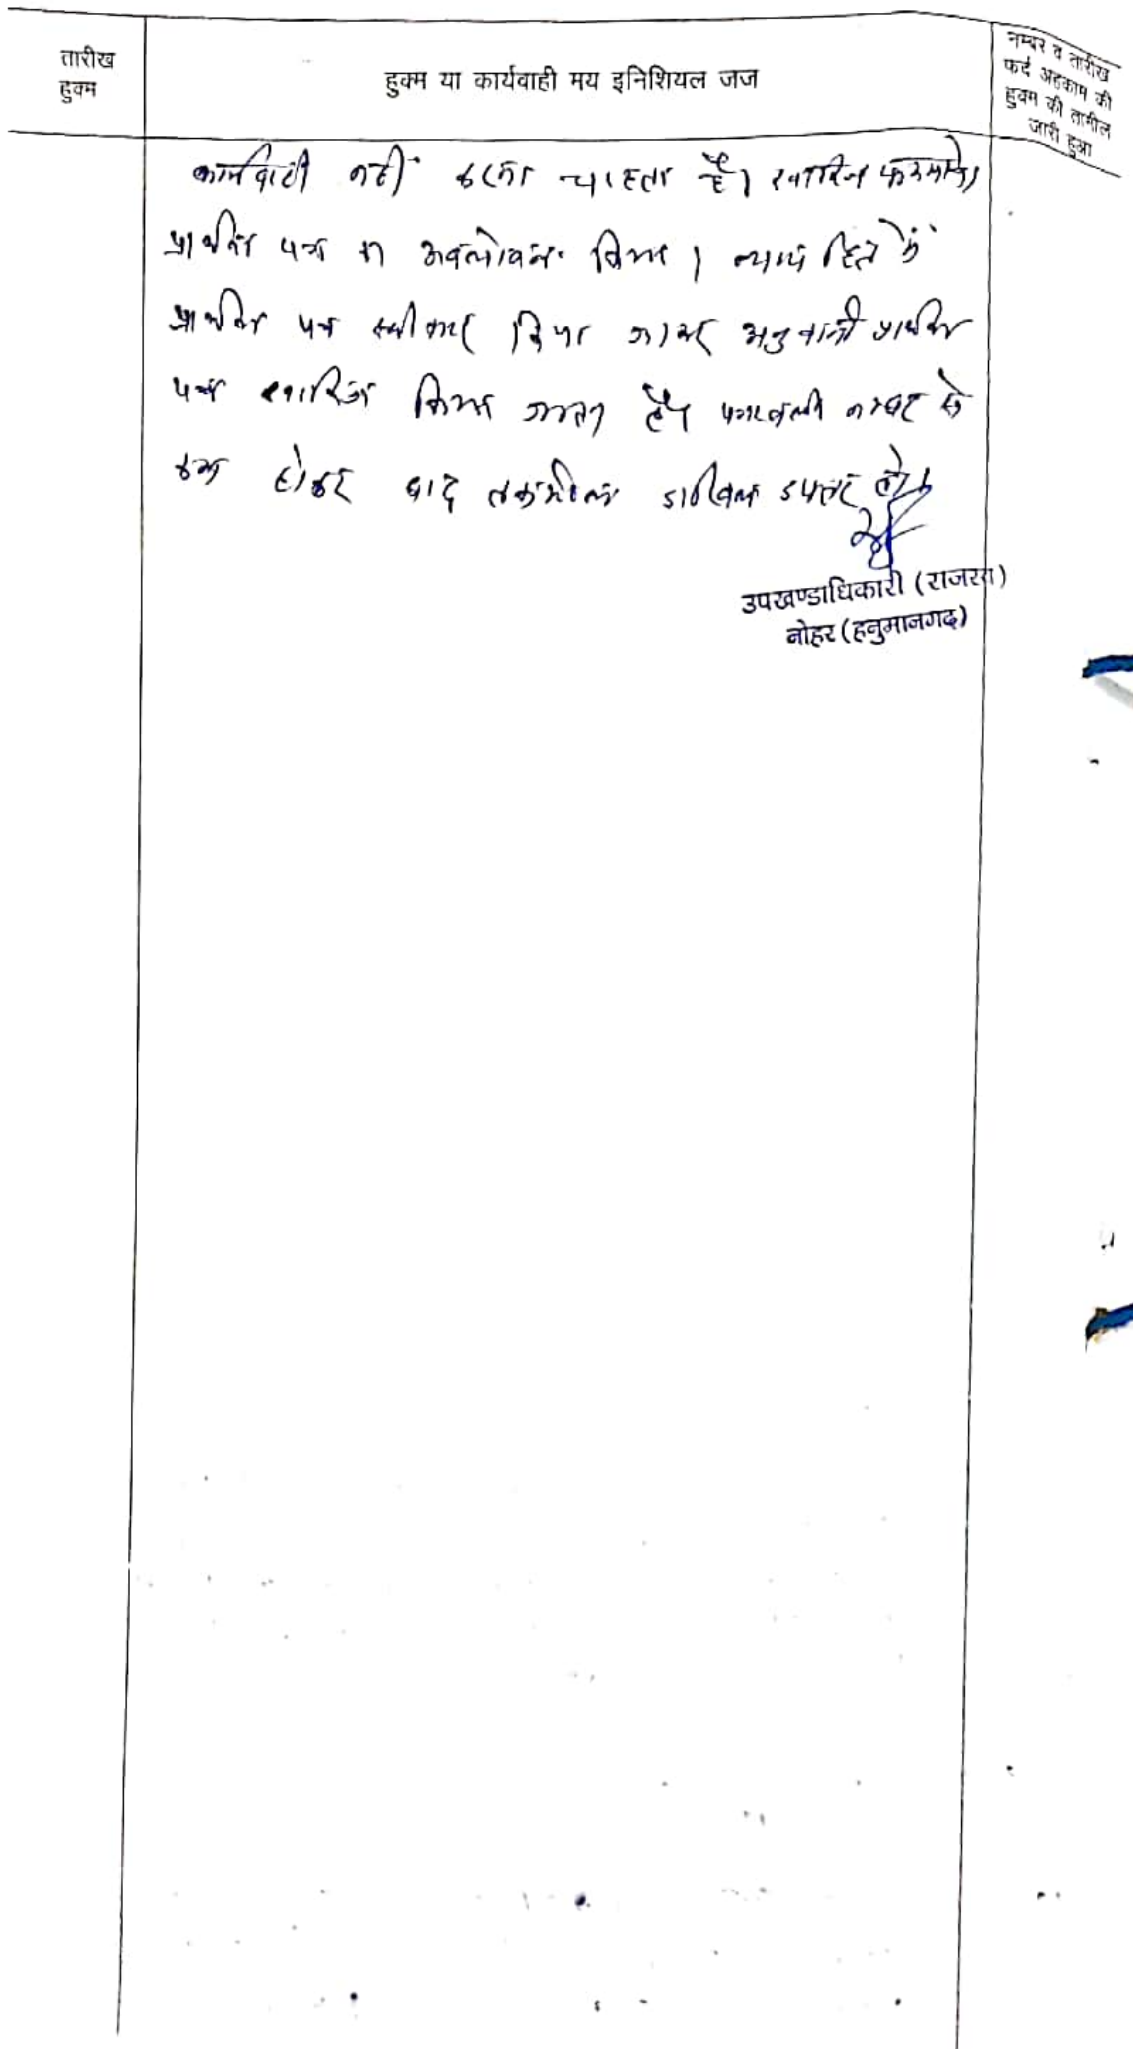 तारीख
हुक्म
हुक्म या कार्यवाही मय इनिशियल जज
नम्बर व तारीख
फर्द अहकाम की
हुक्म की तामील
जारी हुआ
कार्यवाही नहीं करना चाहता है। खारिज फरमावे।
प्रार्थना पत्र का अवलोकन किया। न्याय हित में
प्रार्थना पत्र स्वीकार किया जाकर प्रार्थना
पत्र खारिज किया जाता है। पत्रावली नम्बर से
कम होकर बाद तकमील दाखिल दफ्तर हो।
उपखण्डाधिकारी (राजस्व)
नोहर (हनुमानगढ़)